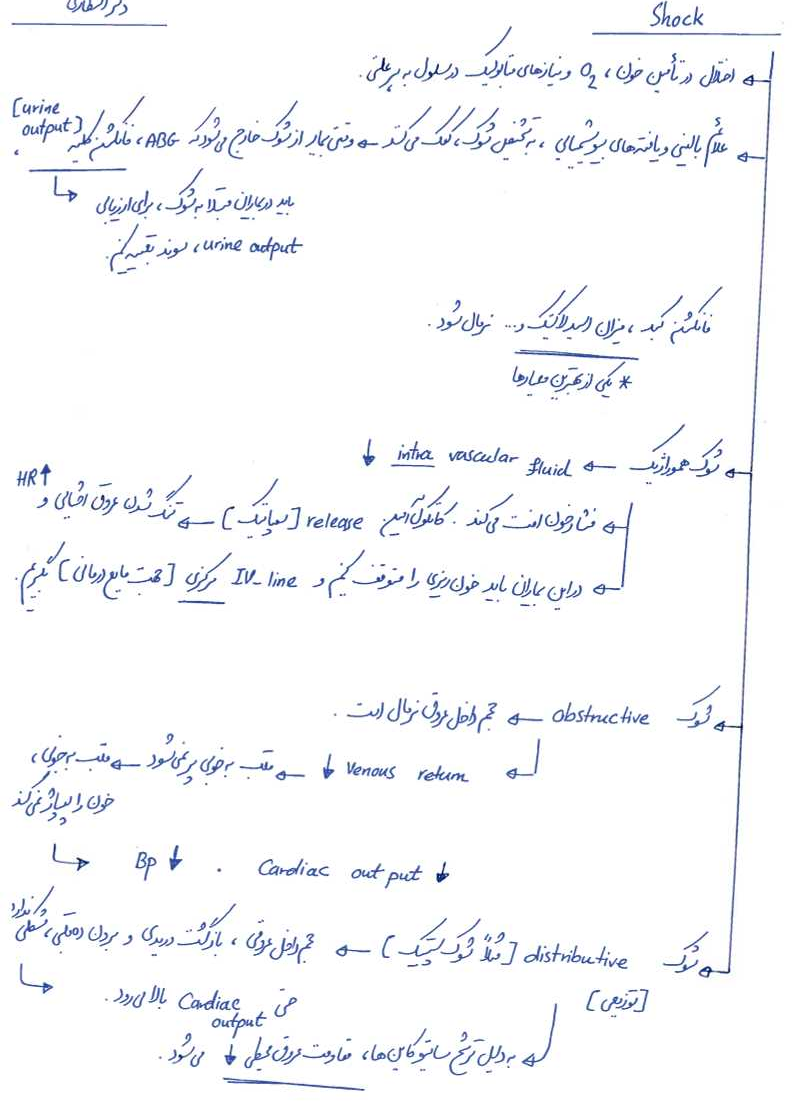 Shock
دکتر انتظاری
← اختلال در تأمین خون، O₂ و نیازهای متابولیک در سلول به هر علتی.
← علائم بالینی و یافته‌های بیوشیمیایی، به تشخیص شوک، کمک می‌کند ← وقتی بیمار از شوک خارج می‌شود که ABG، فانکشن کلیه [urine output]،
باید در بیماران مبتلا به شوک، برای ارزیابی
urine output، سوند تعبیه کنیم.
فانکشن کبد، میزان اسیدلاکتیک و... نرمال شود.
* یکی از بهترین معیارها
← شوک هموراژیک ← intra vascular fluid ↓
← فشارخون افت می‌کند. کاتکول آمین release [سمپاتیک] ← تنگ شدن عروق احشایی و HR↑
← در این بیماران باید خون‌ریزی را متوقف کنیم و IV-line مرکزی [جهت مایع درمانی] بگیریم.
← شوک obstructive ← حجم داخل عروق نرمال است.
← Venous return ↓ ← قلب به خوبی پر نمی‌شود ← قلب به خوبی،
خون را پمپاژ نمی‌کند
Cardiac output ↓ . Bp ↓
← شوک distributive [مثلاً شوک سپتیک] ← حجم داخل عروقی، بازگشت وریدی و برون ده قلبی، مشکلی ندارد
[توزیعی]
حتی Cardiac output بالا می‌رود.
← به دلیل ترشح سایتوکاین‌ها، مقاومت عروق محیطی ↓ می‌شود.